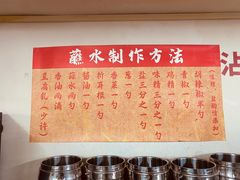 蘸水制作方法
(味精、盐酌情添加)
胡辣椒半勺
青椒一勺
鸡精一勺
味精三分之一勺
盐三分之一勺
葱一勺
香菜一勺
折耳根一勺
酱油一勺
蒜水两勺
香油两滴
豆腐乳(少许)
沾